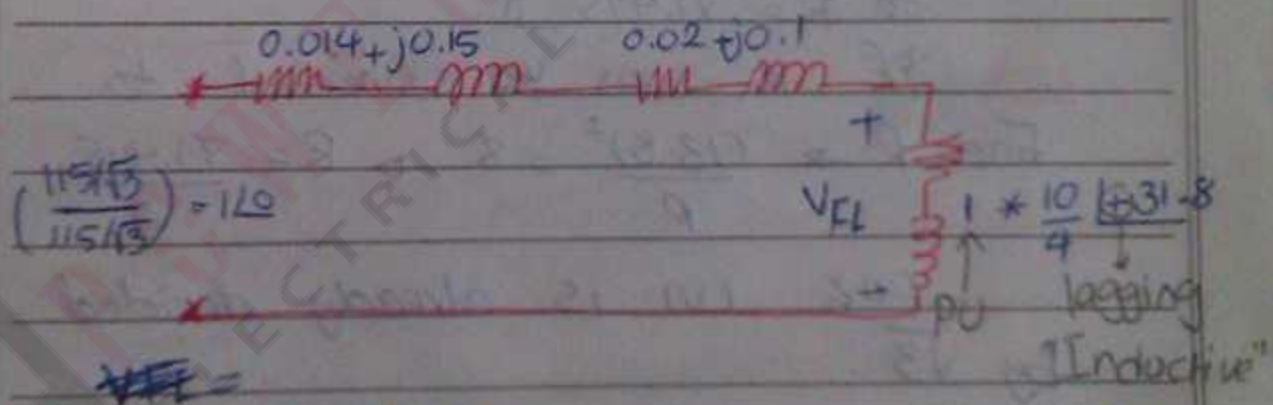 0.014+j0.15 0.02+j0.1
+
(115/√3 / 115/√3) = 1∠0
V_FL 1 * 10/4 ∠+31.8
-
PU lagging
"Inductive"